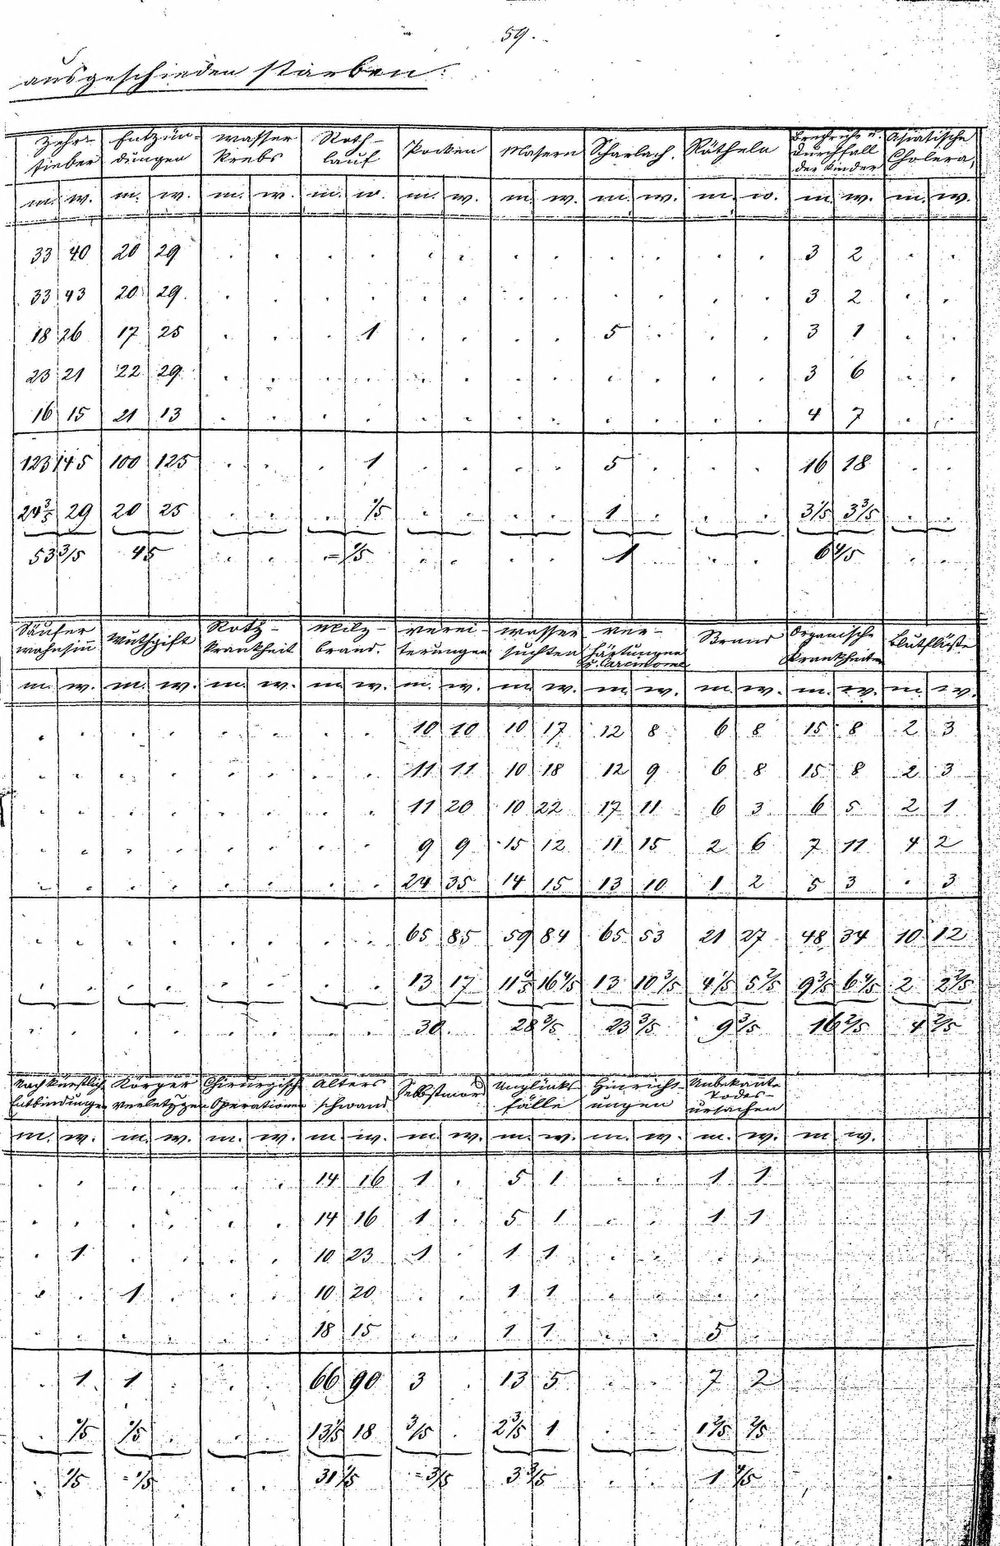 59.
ausgeschieden starben:
Zehr- Entzün- Wasser Roth- Pocken Masern Scharlach. Rötheln Brechruhr u. Asiatische
fieber dungen Krebs lauf Durchfall Cholera,
der Kinder
m. w. m. w. m. w. m. w. m. w. m. w. m. w. m. w. m. w. m. w.
33 40 20 29 . . . . . . . . . . . . 3 2 . .
33 43 20 29 . . . . . . . . . . . . 3 2 . .
18 26 17 25 . . . 1 . . . . 5 . . . 3 1 . .
23 21 22 29 . . . . . . . . . . . . 3 6 . .
16 15 21 13 . . . . . . . . . . . . 4 7 . .
123 145 100 125 . . . 1 . . . . 5 . . . 16 18 . .
24 3/5 29 20 25 . . . 1/5 . . . . 1 . . . 3 1/5 3 3/5 . .
53 3/5 45 . . = 1/5 . . . . 1 . . 6 4/5 . .
Säufer Wuthgift Rotz- Milz- Verei- Wasser Ver- Brand Organische Blutflüße
wahnsinn Krankheit brand. terungen suchten härtungen Krankheiten
u. Carcinome
m. w. m. w. m. w. m. w. m. w. m. w. m. w. m. w. m. w. m. w.
. . . . . . . . 10 10 10 17 12 8 6 8 15 8 2 3
. . . . . . . . 11 11 10 18 12 9 6 8 15 8 2 3
. . . . . . . . 11 20 10 22 17 11 6 3 6 5 2 1
. . . . . . . . 9 9 15 12 11 15 2 6 7 11 4 2
. . . . . . . . 24 35 14 15 13 10 1 2 5 3 . 3
. . . . . . . . 65 85 59 84 65 53 21 27 48 34 10 12
. . . . . . . . 13 17 11 4/5 16 4/5 13 10 3/5 4 1/5 5 2/5 9 3/5 6 4/5 2 2 2/5
. . . . . . . . 30. 28 3/5 23 3/5 9 3/5 16 2/5 4 2/5
Nach künstlich Körper Chirurgisch Alters Selbstmord Unglücks Hinricht- Unbekannte
Entbindungen verletzgen Operationen schwand fälle ungen Todes-
ursachen
m. w. m. w. m. w. m. w. m. w. m. w. m. w. m. w. m. w.
. . . . . . 14 16 1 . 5 1 . . 1 1
. . . . . . 14 16 1 . 5 1 . . 1 1
. 1 . . . . 10 23 1 . 1 1 . . . .
. . 1 . . . 10 20 . . 1 1 . . . .
. . . . . . 18 15 . . 1 1 . . 5 .
. 1 1 . . . 66 90 3 . 13 5 . . 7 2
. 1/5 1/5 . . . 13 1/5 18 3/5 . 2 3/5 1 . . 1 2/5 2/5
. 1/5 = 1/5 . . 31 1/5 = 3/5 3 3/5 . . 1 4/5